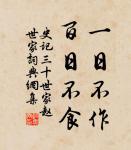 一日不作
百日不食
史記三十世家趙
世家詞典網集